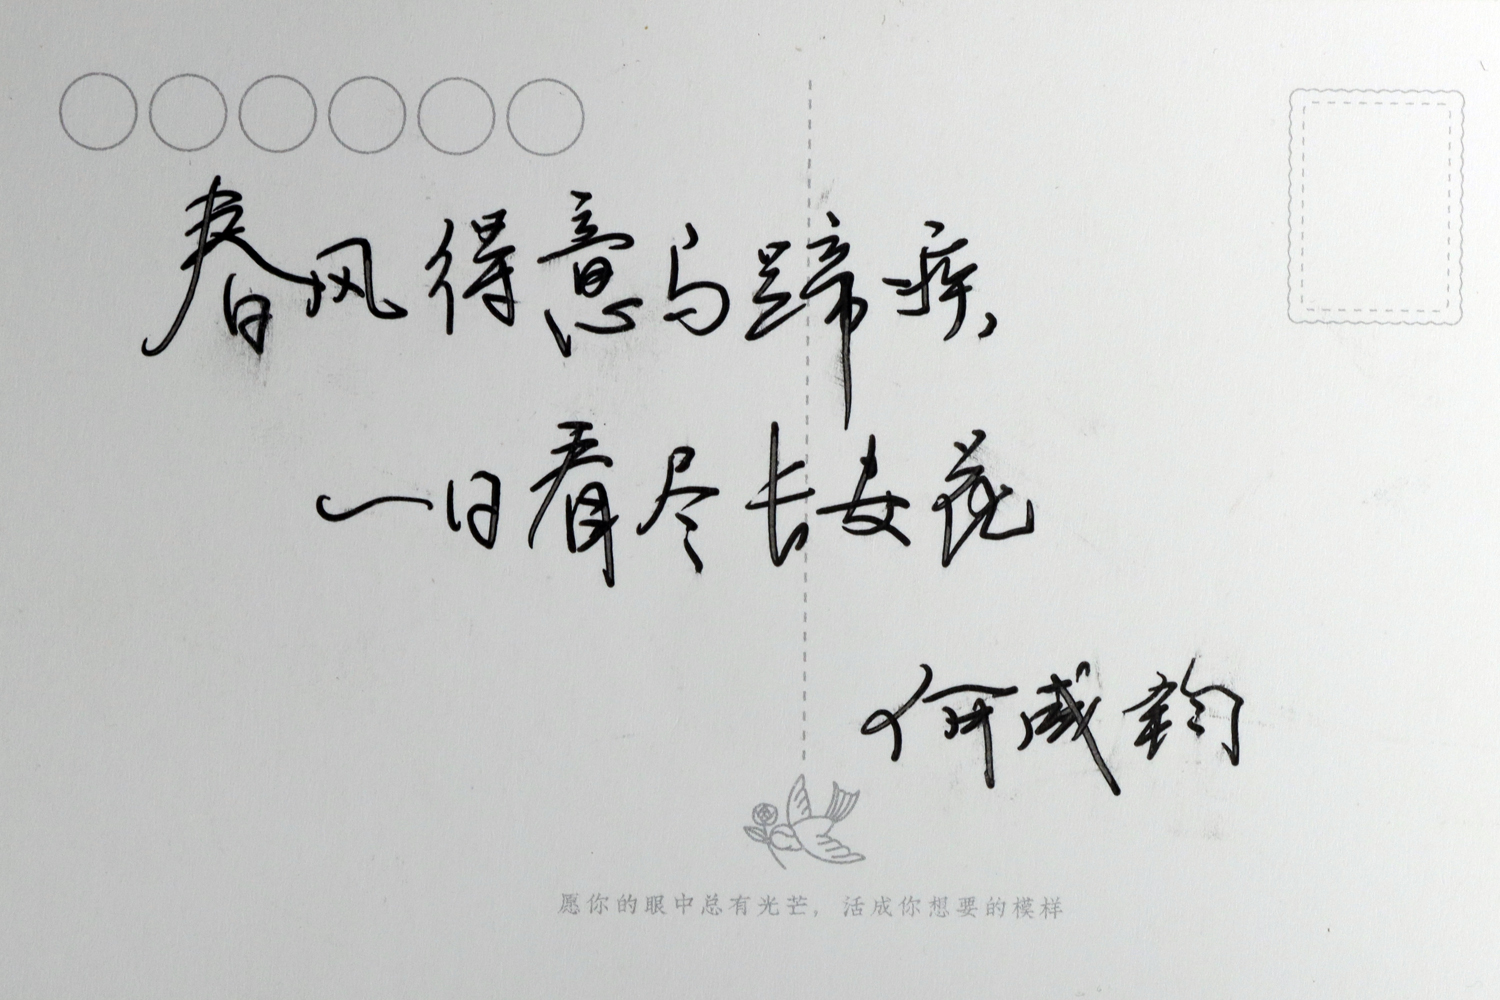 春风得意马蹄疾，
一日看尽长安花
何咸韵
愿你的眼中总有光芒，活成你想要的模样